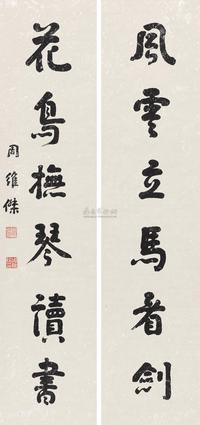 風雲立馬看劍
花鳥撫琴讀書
周維傑